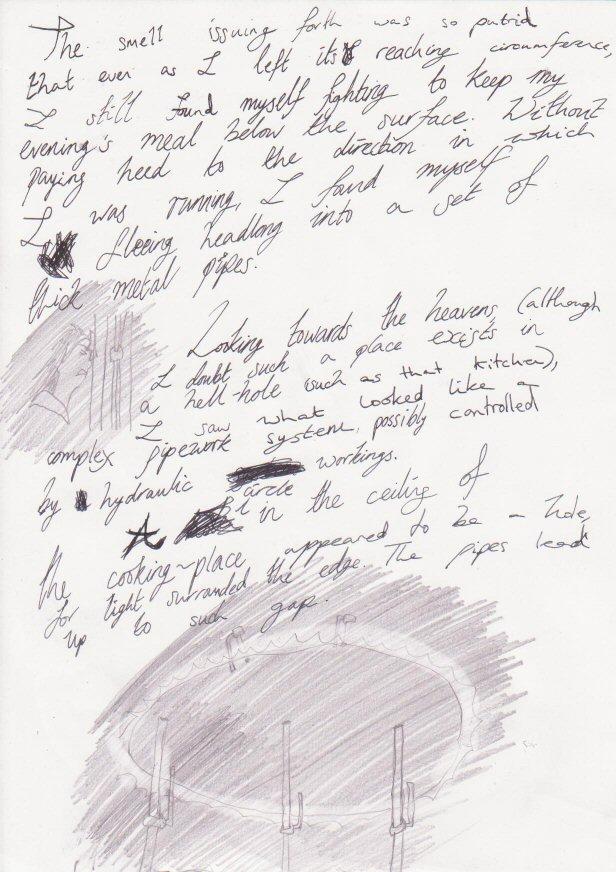 The smell issuing forth was so putrid
that even as I left its reaching circumference,
I still found myself fighting to keep my
evening's meal below the surface. Without
paying heed to the direction in which
I was running, I found myself
fleeing headlong into a set of
thick metal pipes.
Looking towards the heavens, (although
I doubt such a place exists in
a hell-hole such as that kitchen),
I saw what looked like a
complex pipework system, possibly controlled
by hydraulic workings.
A circle in the ceiling of
the cooking-place appeared to be a hole,
for light surranded the edge. The pipes lead
up to such gap.